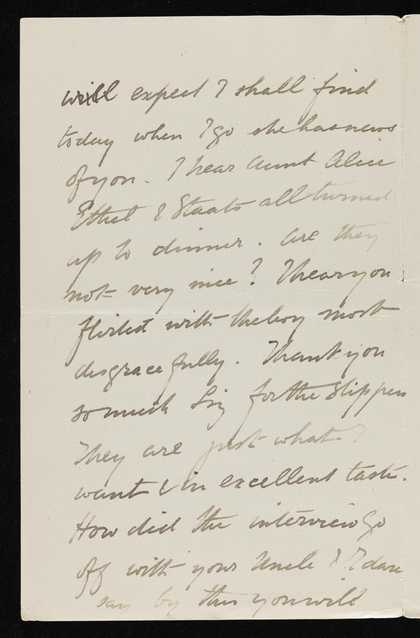 will expect I shall find
today when I go she has news
of you. I hear Aunt Alice
Ethel & Staats all turned
up to dinner. Are they
not very nice? I hear you
flirted with the boy most
disgracefully. Thank you
so much Liz for the slippers
They are just what I
want & in excellent taste.
How did the interview go
off with your Uncle? I dare
say by this you will